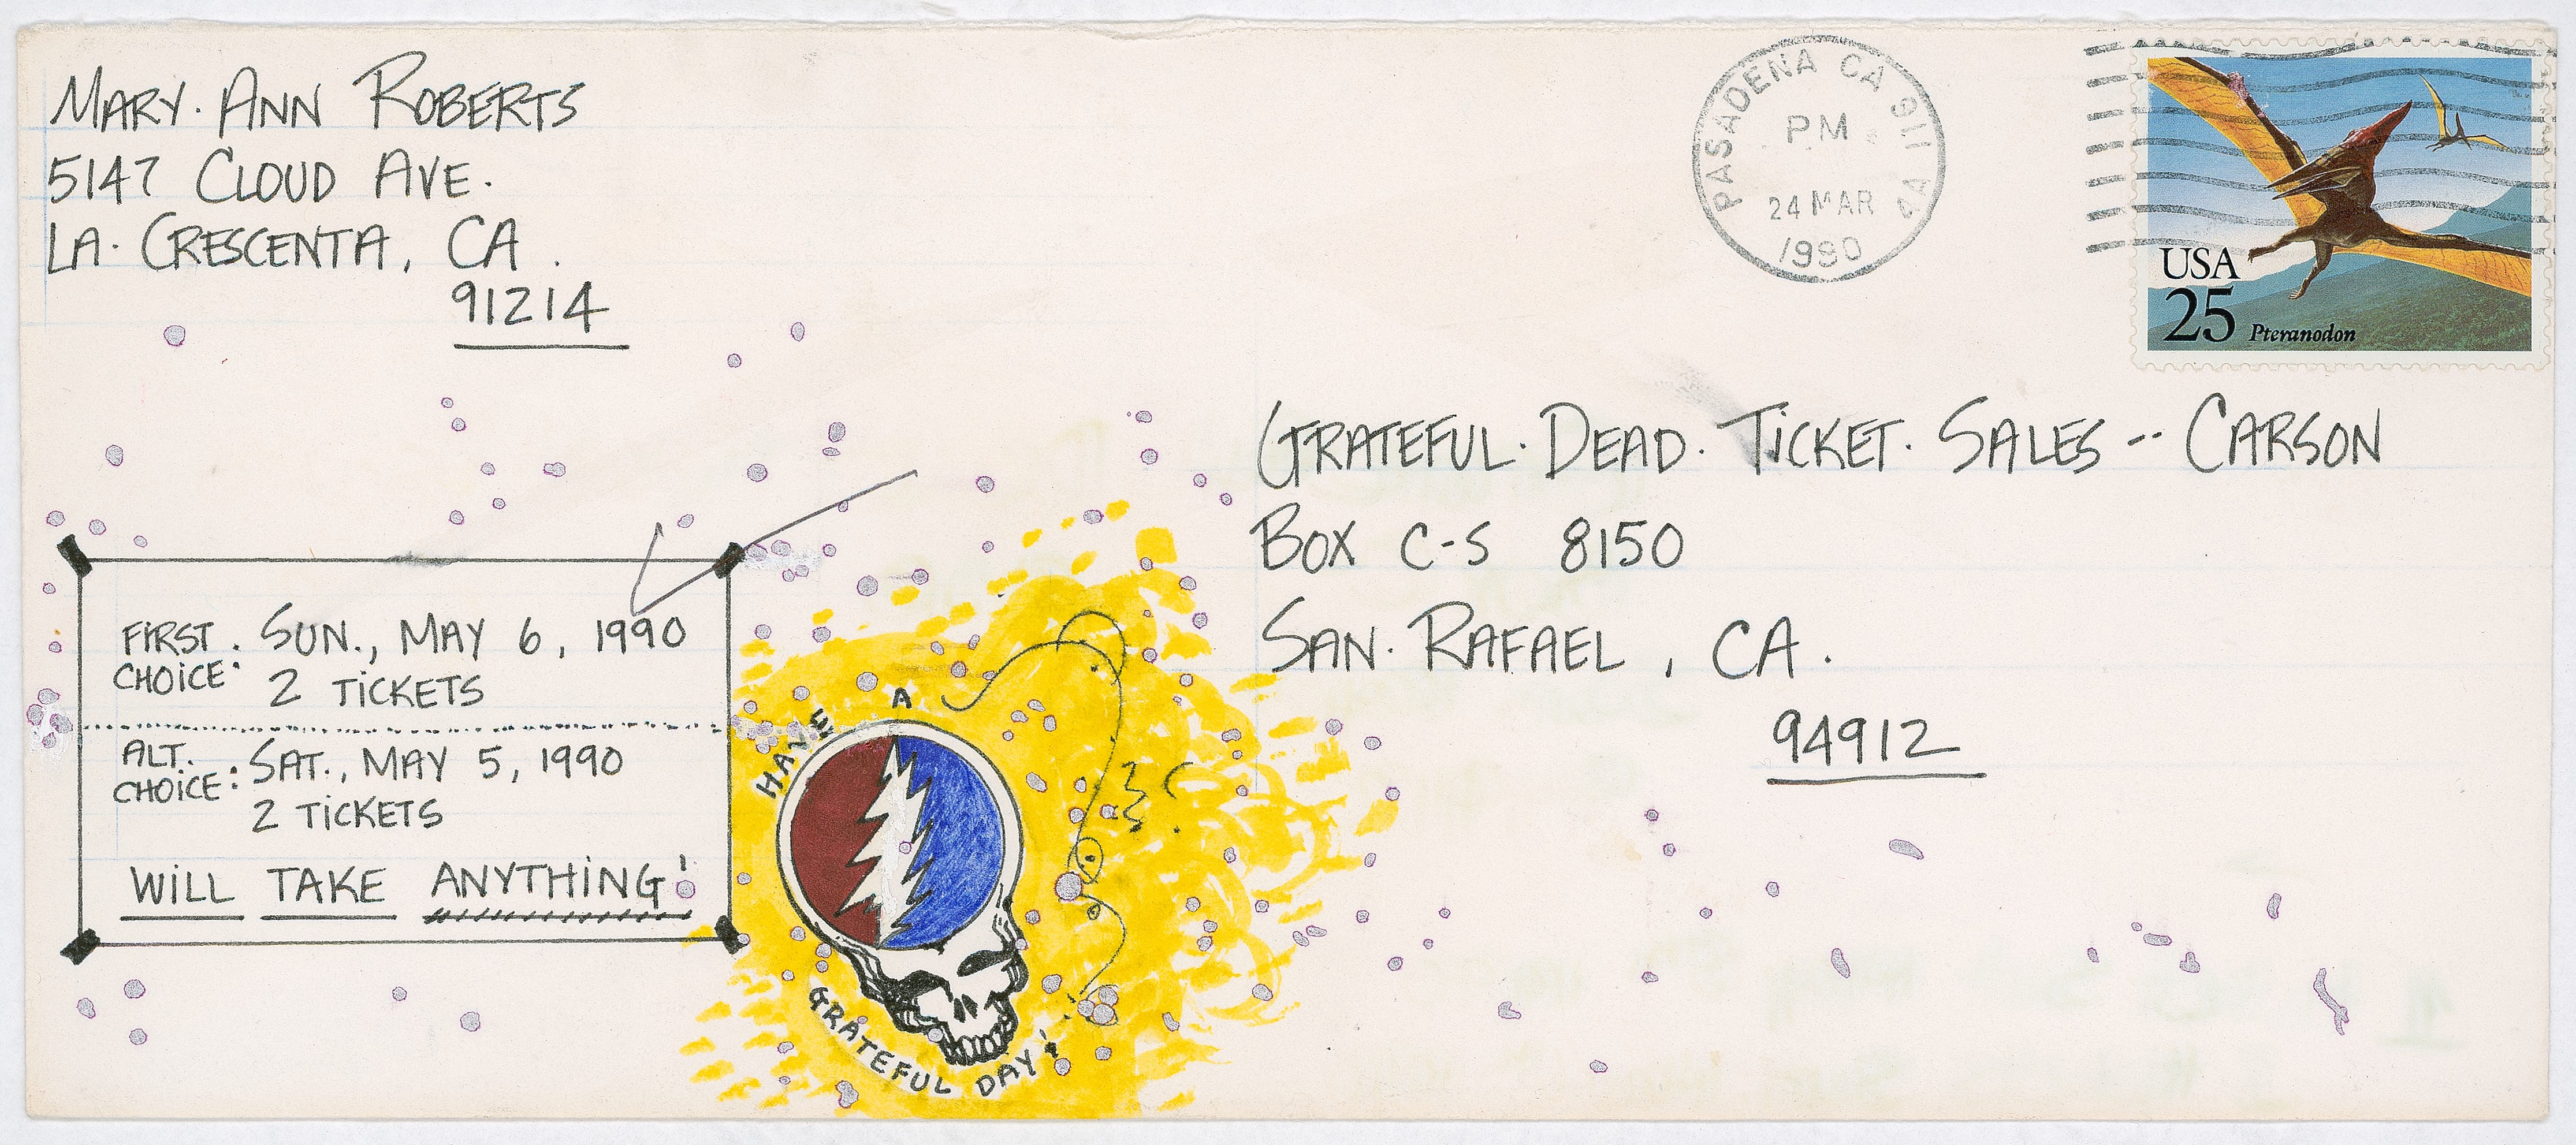 MARY. ANN ROBERTS
5147 CLOUD AVE.
LA. CRESCENTA, CA.
91214
PASADENA CA 911
PM
24 MAR
1990
USA
25 Pteranodon
GRATEFUL. DEAD. TICKET. SALES -- CARSON
BOX C-S 8150
SAN. RAFAEL, CA.
94912
FIRST. CHOICE: SUN., MAY 6, 1990
2 TICKETS
ALT. CHOICE: SAT., MAY 5, 1990
2 TICKETS
WILL TAKE ANYTHING!
HAVE A
GRATEFUL DAY!